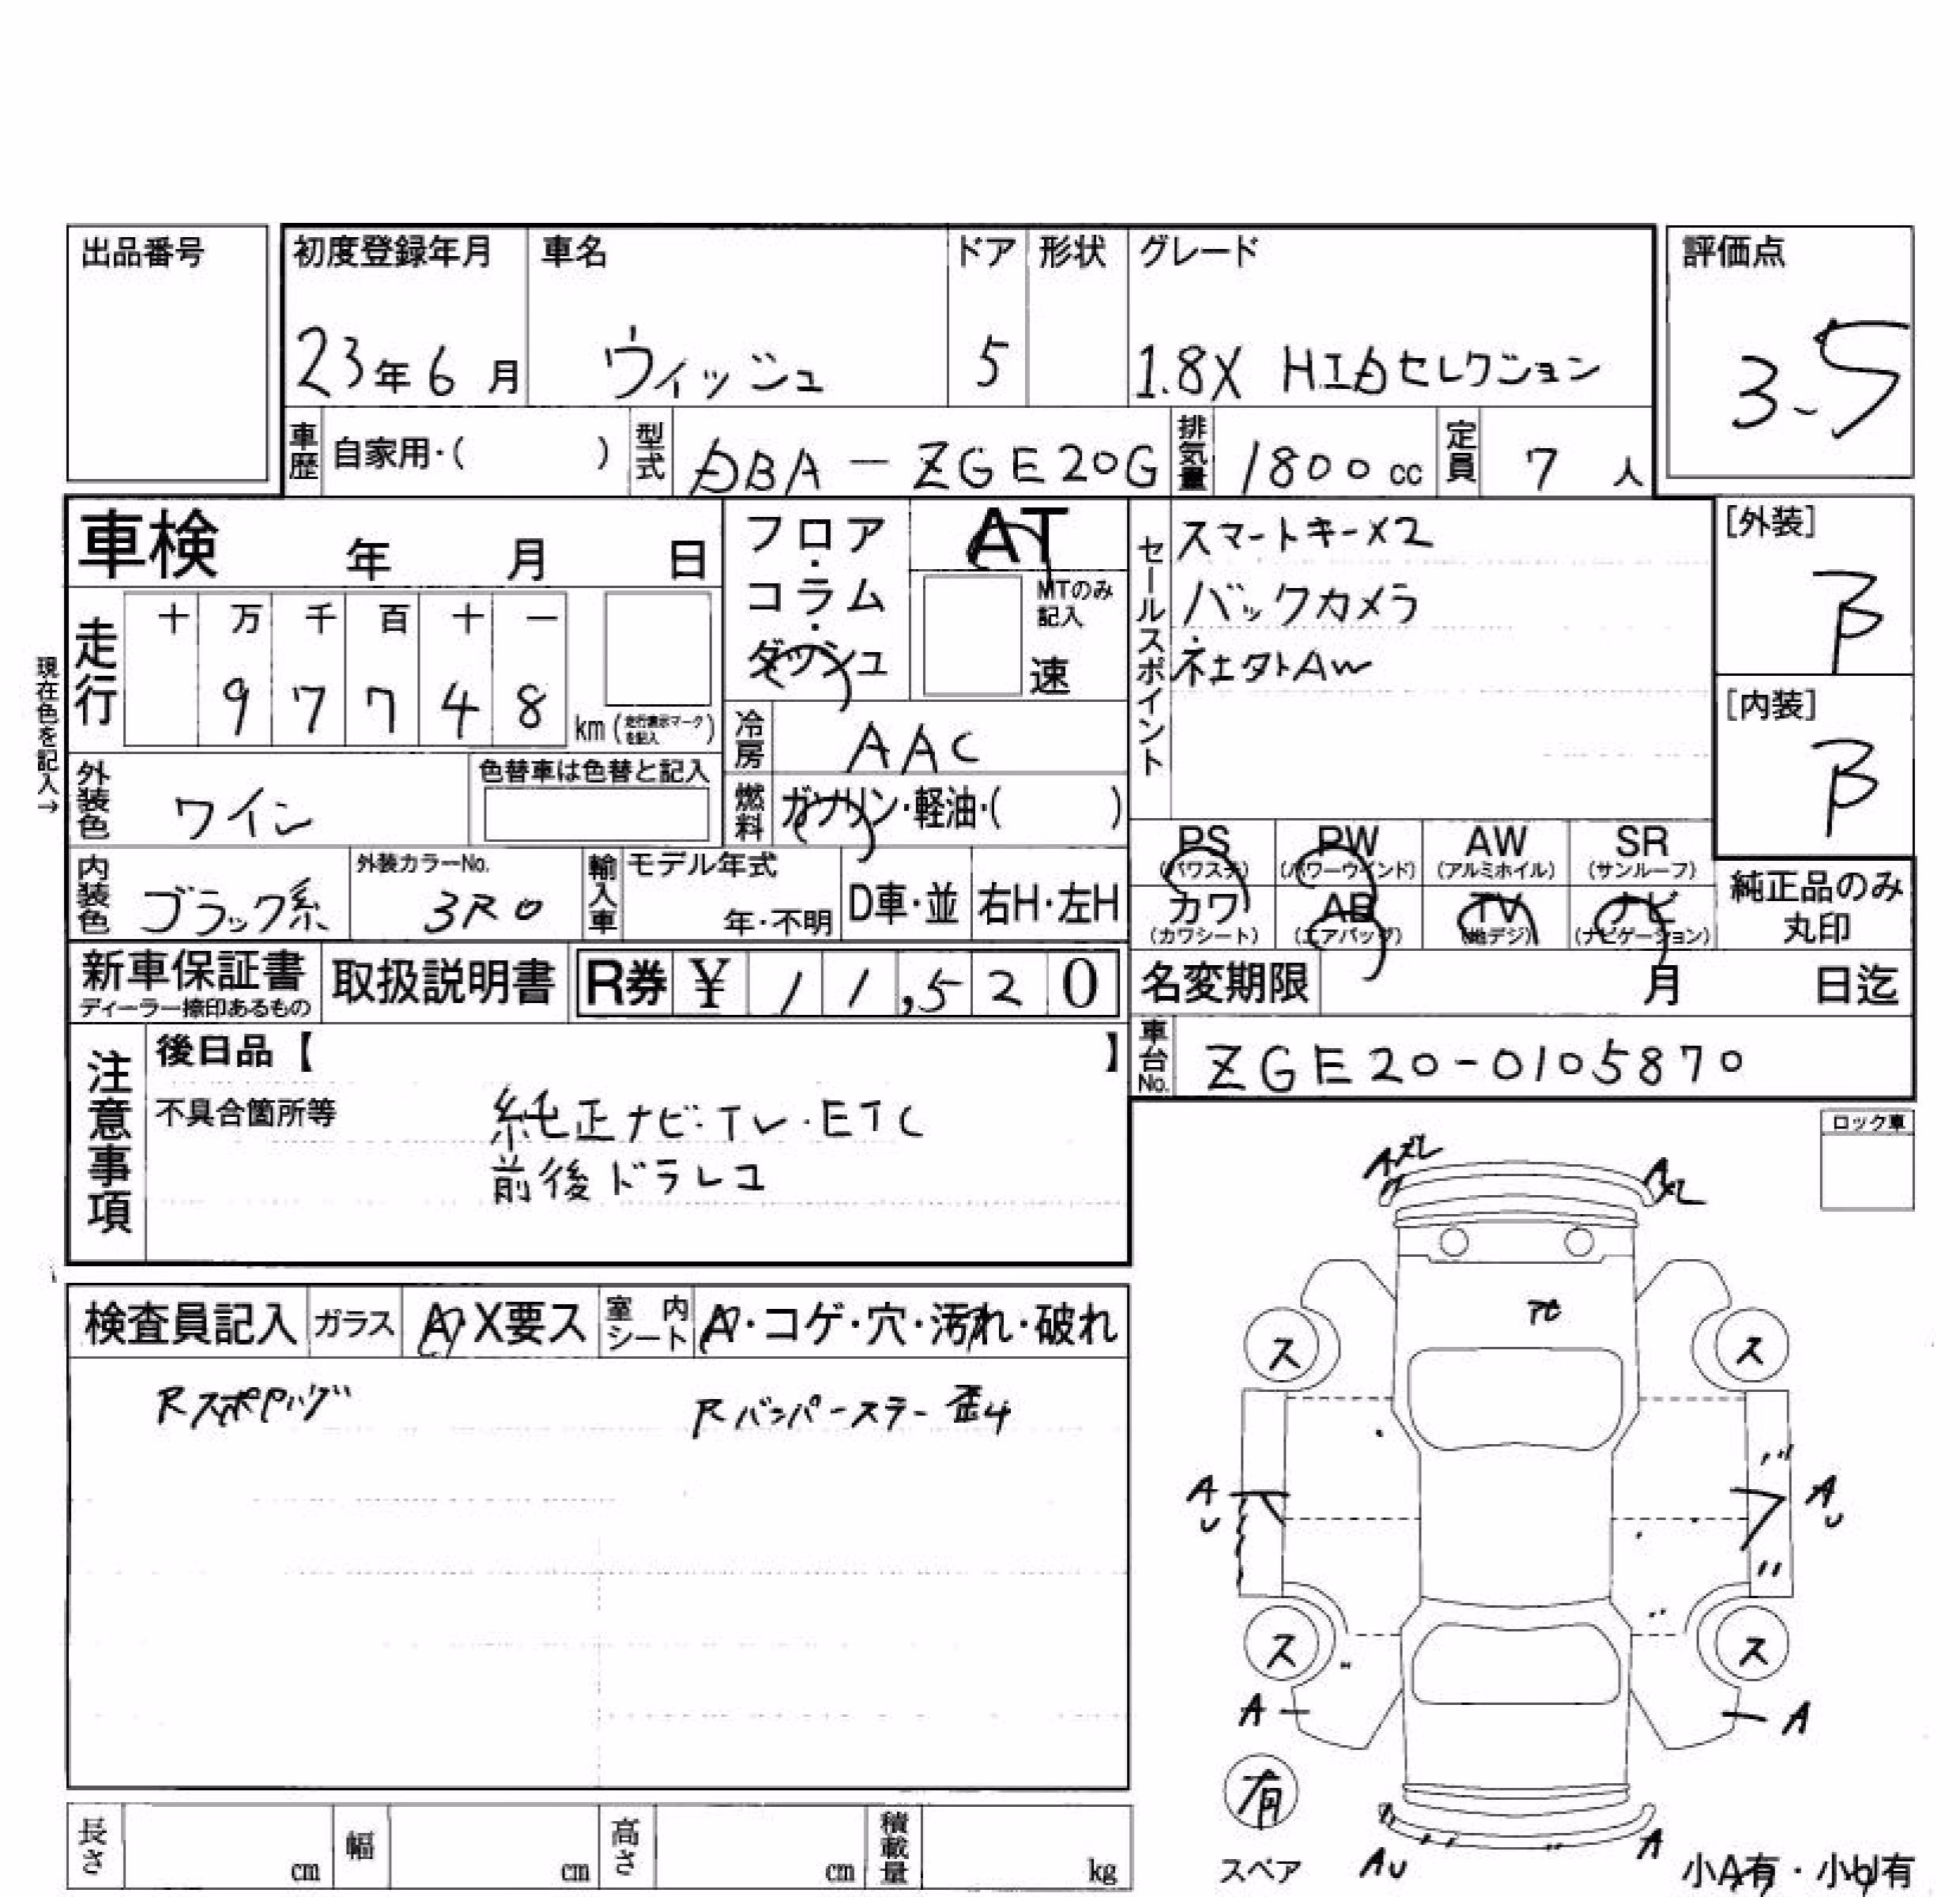 出品番号
初度登録年月 車名 ドア 形状 グレード 評価点
23年6月 ウィッシュ 5 1.8X HIDセレクション 3.5
車歴 自家用・( ) 型式 DBA-ZGE20G 排気量 1800cc 定員 7人
車検 年 月 日
フロア・コラム・ダッシュ
AT
MTのみ記入
速
セールスポイント
スマートキーX2
バックカメラ
社外AW
[外装]
B
[内装]
B
現在色を記入→
走行 十 万 千 百 十 一
9 7 7 4 8 km (走行表示マークを記入)
冷房 AAC
外装色 ワイン 色替車は色替と記入
燃料 ガソリン・軽油・( )
PS (パワステ) PW (パワーウインド) AW (アルミホイル) SR (サンルーフ)
カワ (カワシート) AB (エアバッグ) TV (地デジ) ナビ (ナビゲーション)
純正品のみ丸印
内装色 ブラック系 外装カラーNo. 3R0 輸入車 モデル年式 年・不明 D車・並 右H・左H
新車保証書 ディーラー捺印あるもの 取扱説明書 R券 ¥ 11,520
名変期限 月 日迄
車台No. ZGE20-0105870
注意事項
後日品【 】
不具合箇所等
純正ナビ・TV・ETC
前後ドラレコ
ロック車
検査員記入 ガラス A X要ス 室内シート A・コゲ・穴・汚れ・破れ
Rバンパーステー 歪み
A
A
ス ス
A A
U U
ス ス
A A
有
スペア
AU A
小A有・小U有
長さ cm 幅 cm 高さ cm 積載量 kg